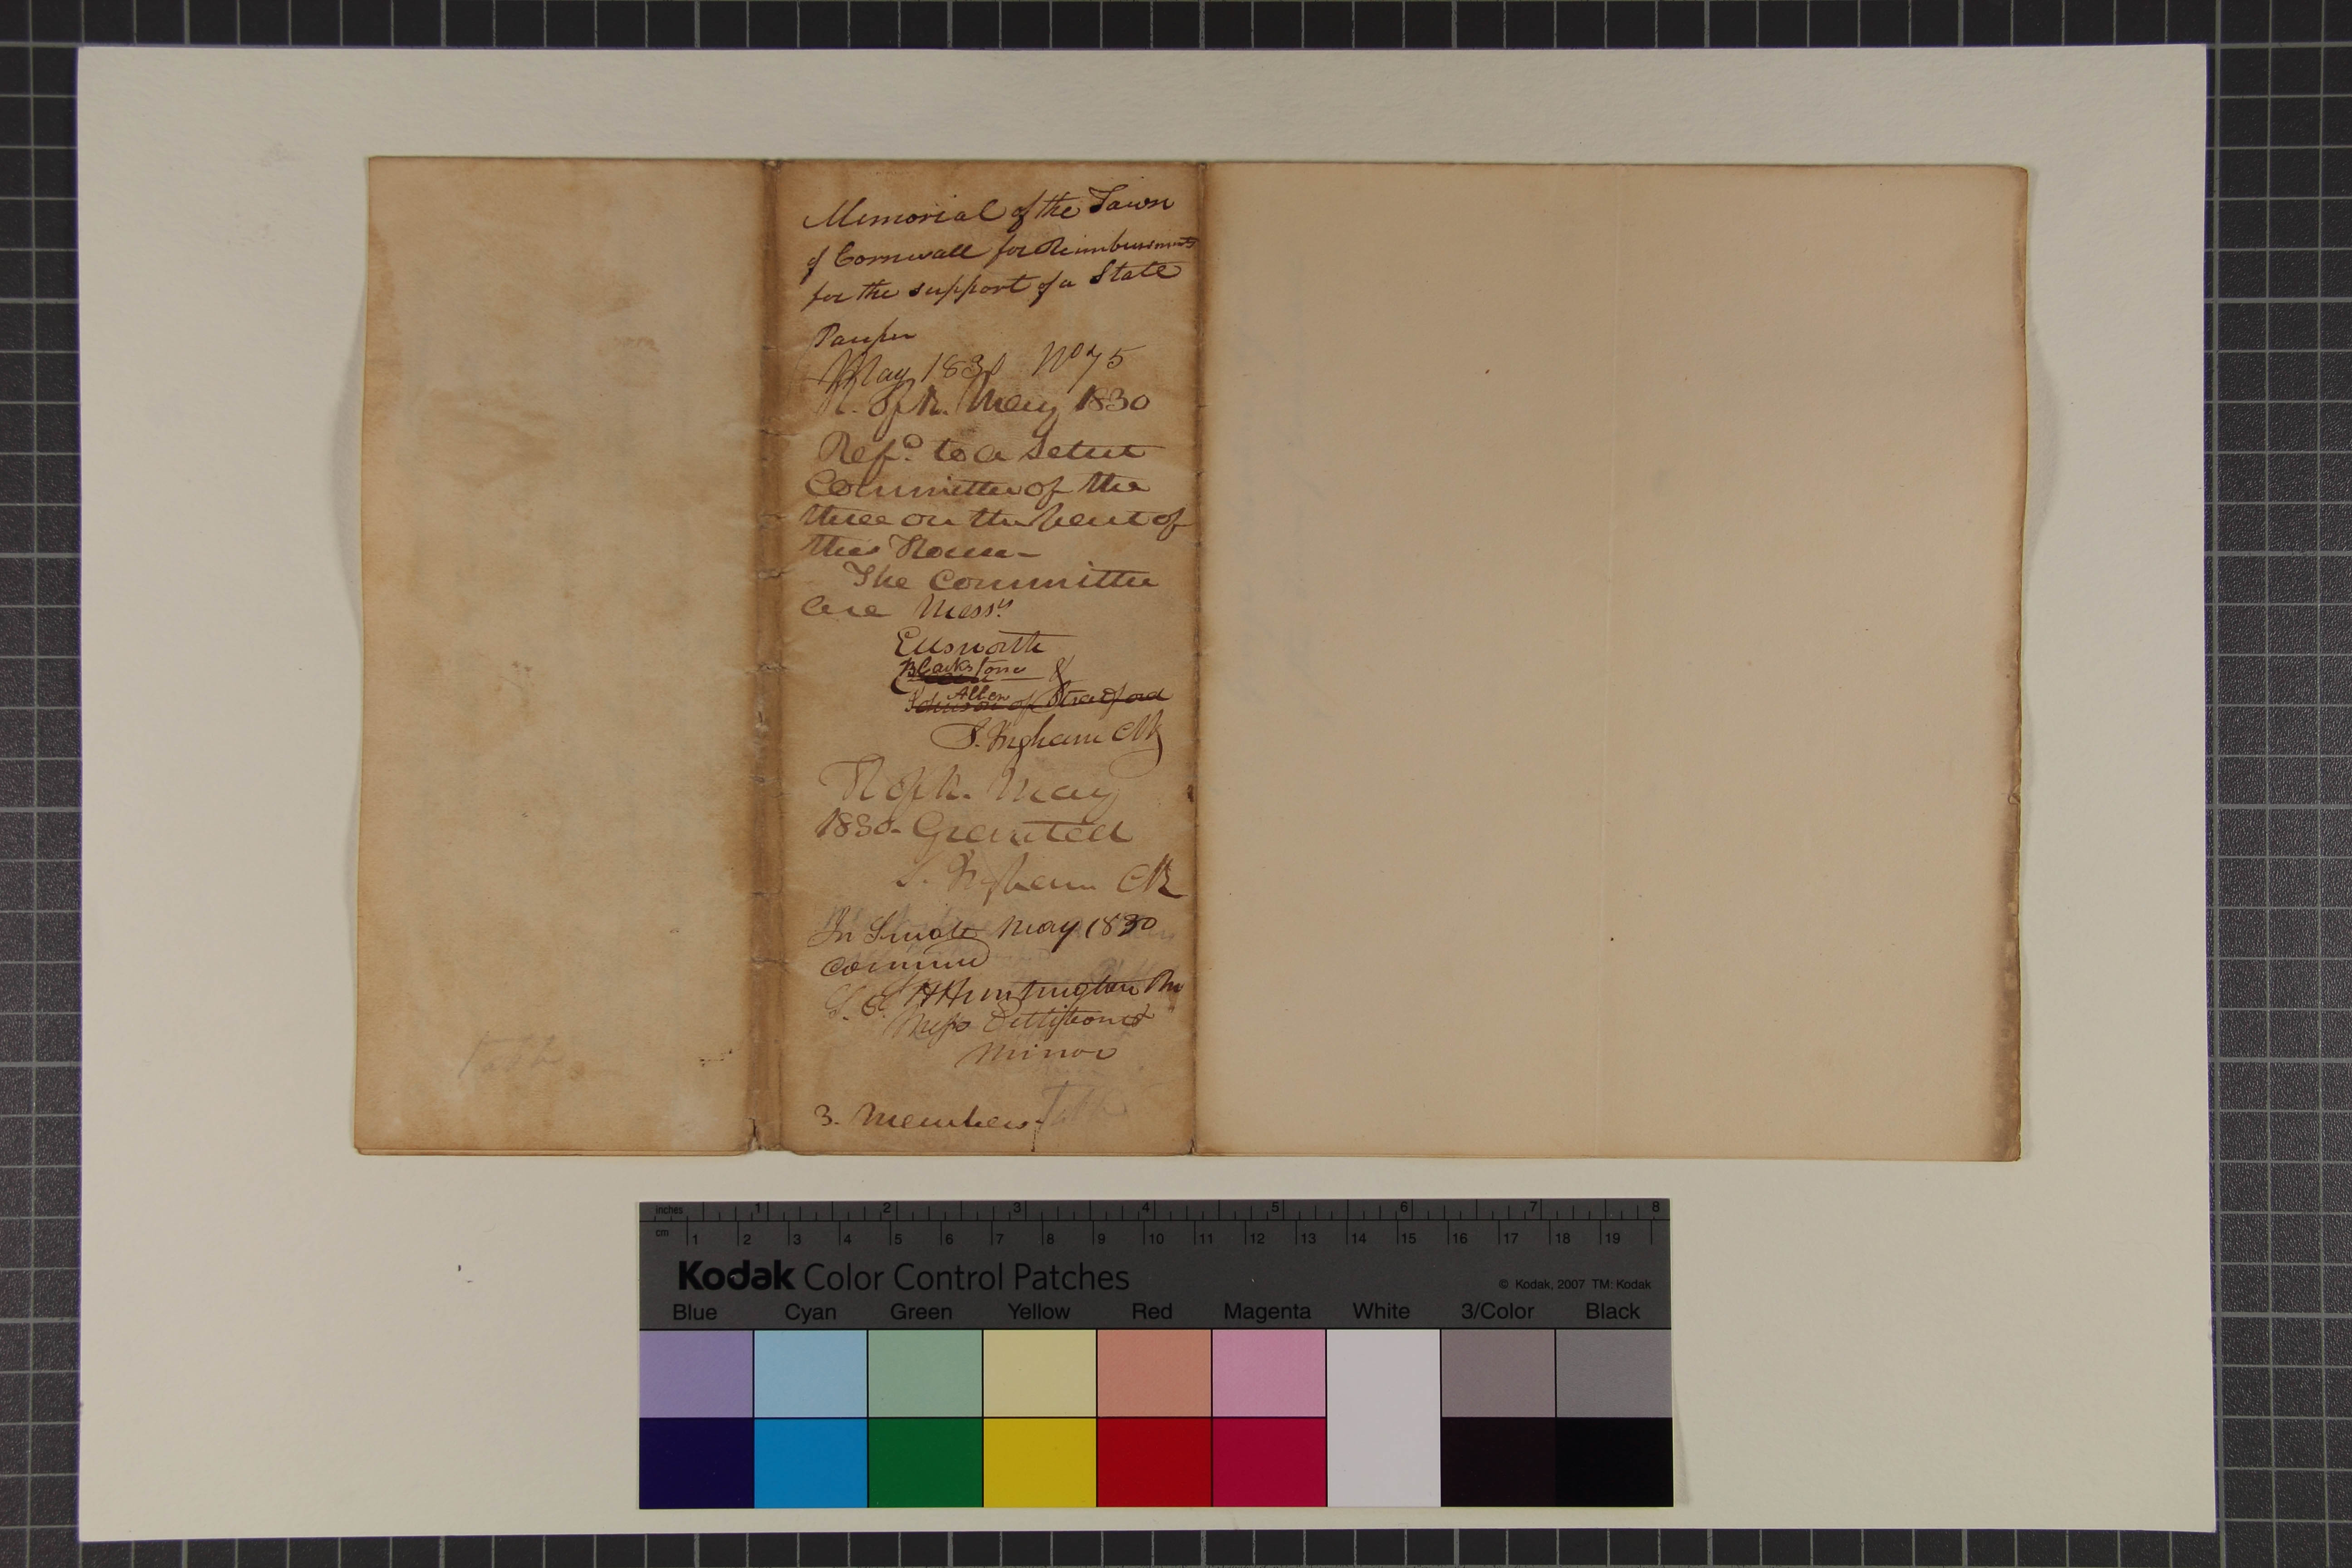 Memorial of the Town
of Cornwall for Reimbursment
for the support of a State
Pauper
May 1830 No 75
H. of R. May 1830
Refd. to a select
Committee of the
three on the part of
this House -
The Committee
are Messrs.
Ellsworth
Blackstone &
Allen
Johnson of Stratford
S. Ingham Clk
H of R. May
1830 - Granted
S. Ingham Clk
In Senate May 1830
Huntington
Minor
3. Members
inches 1 2 3 4 5 6 7 8
cm 1 2 3 4 5 6 7 8 9 10 11 12 13 14 15 16 17 18 19
Kodak Color Control Patches
© Kodak, 2007 TM: Kodak
Blue Cyan Green Yellow Red Magenta White 3/Color Black